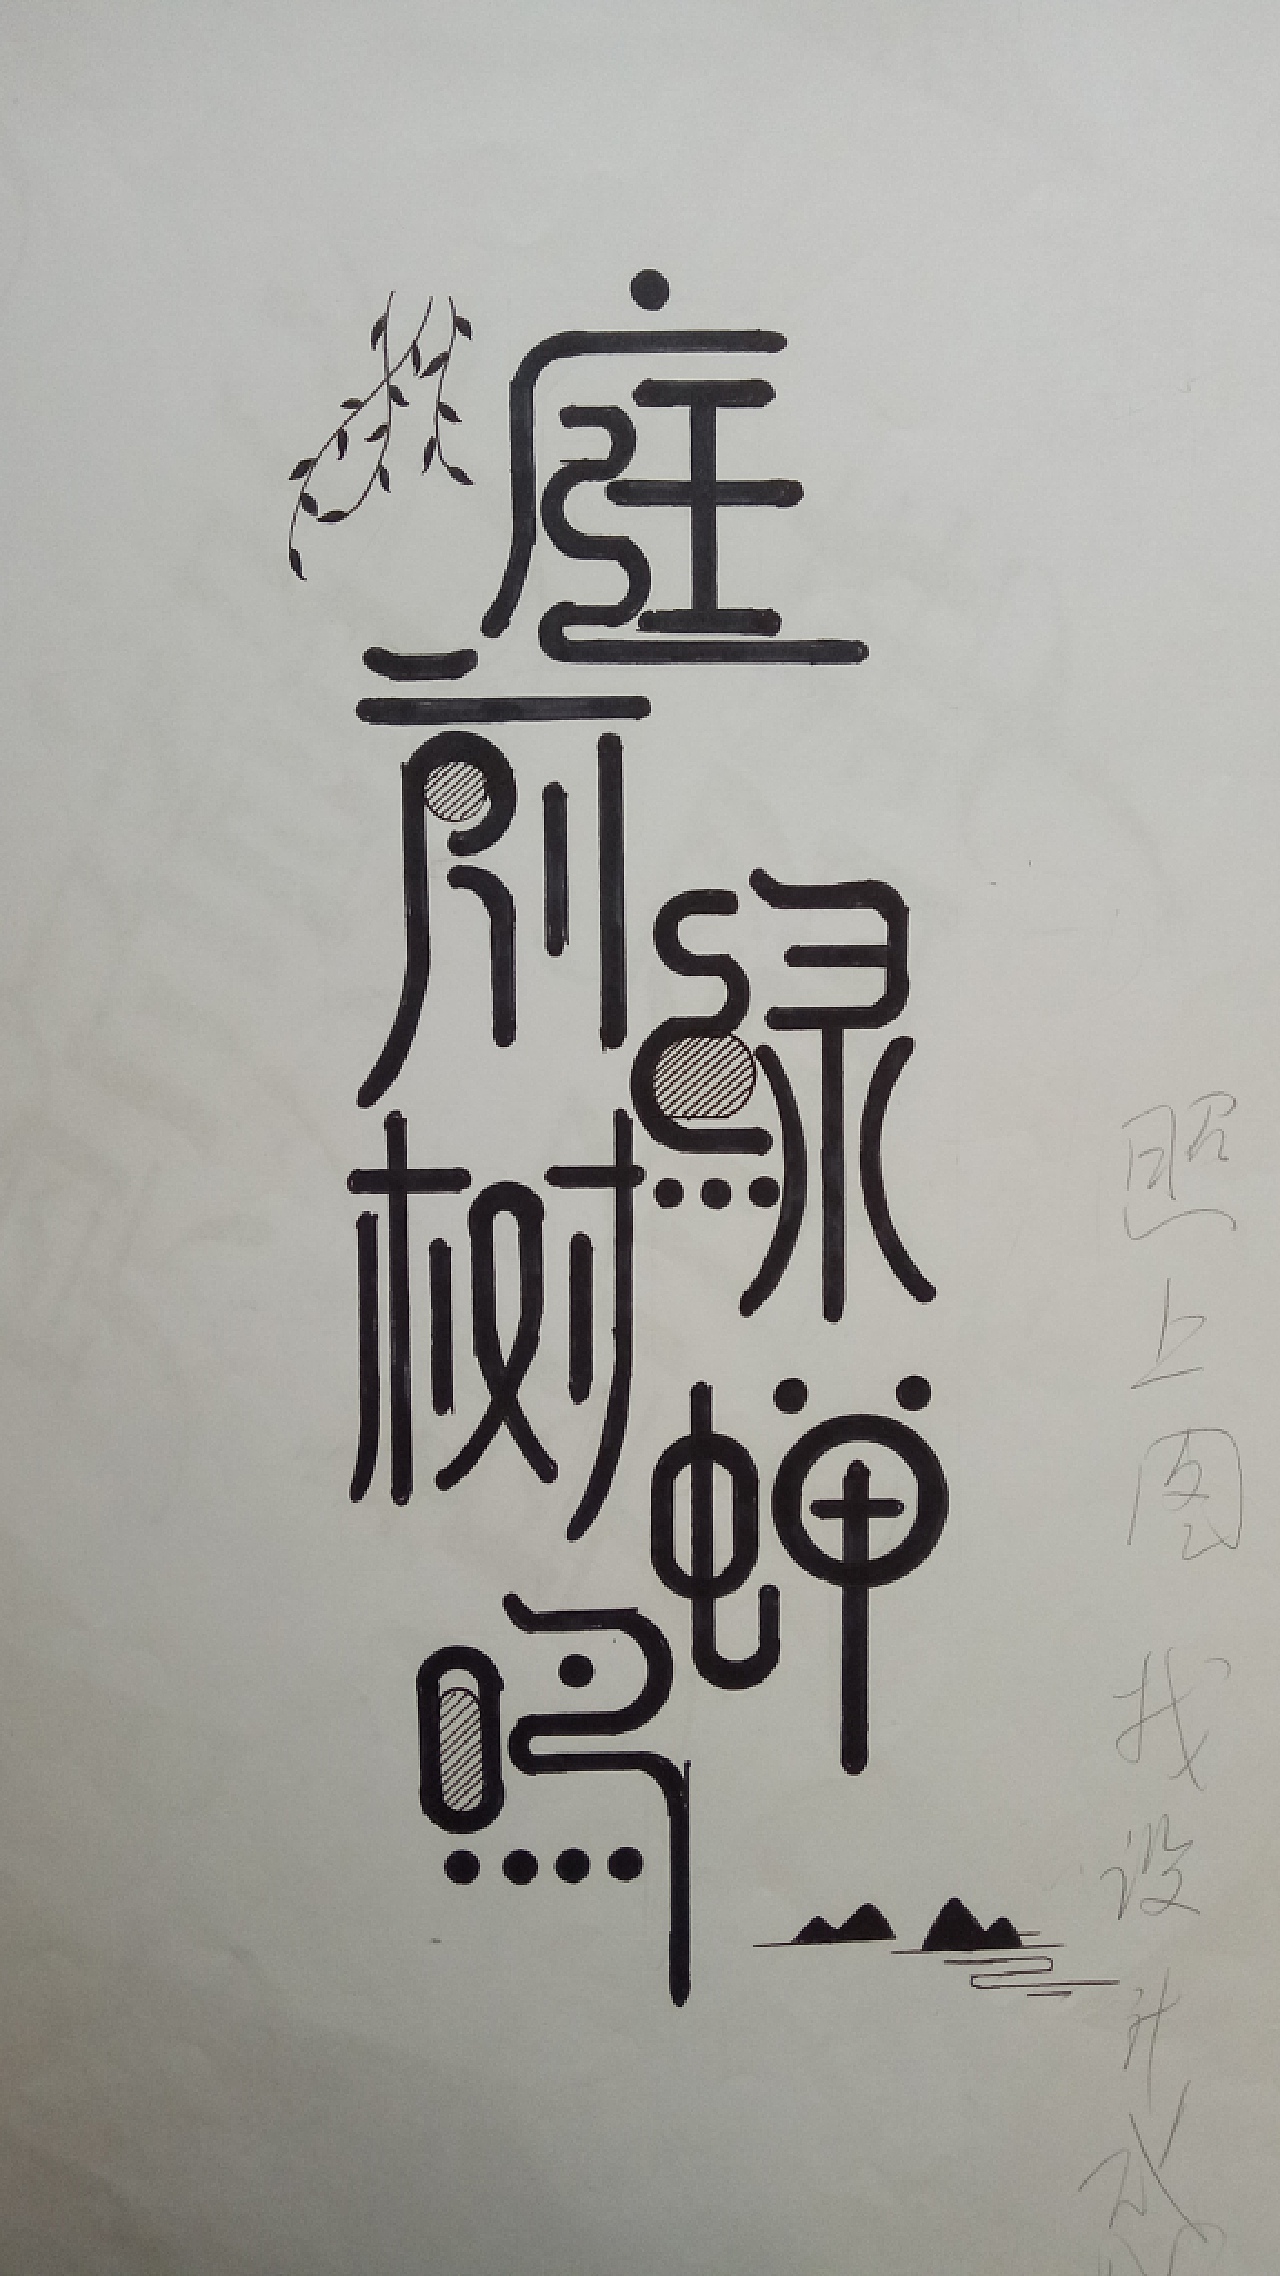 庭前绿树蝉鸣
照上图找设计成